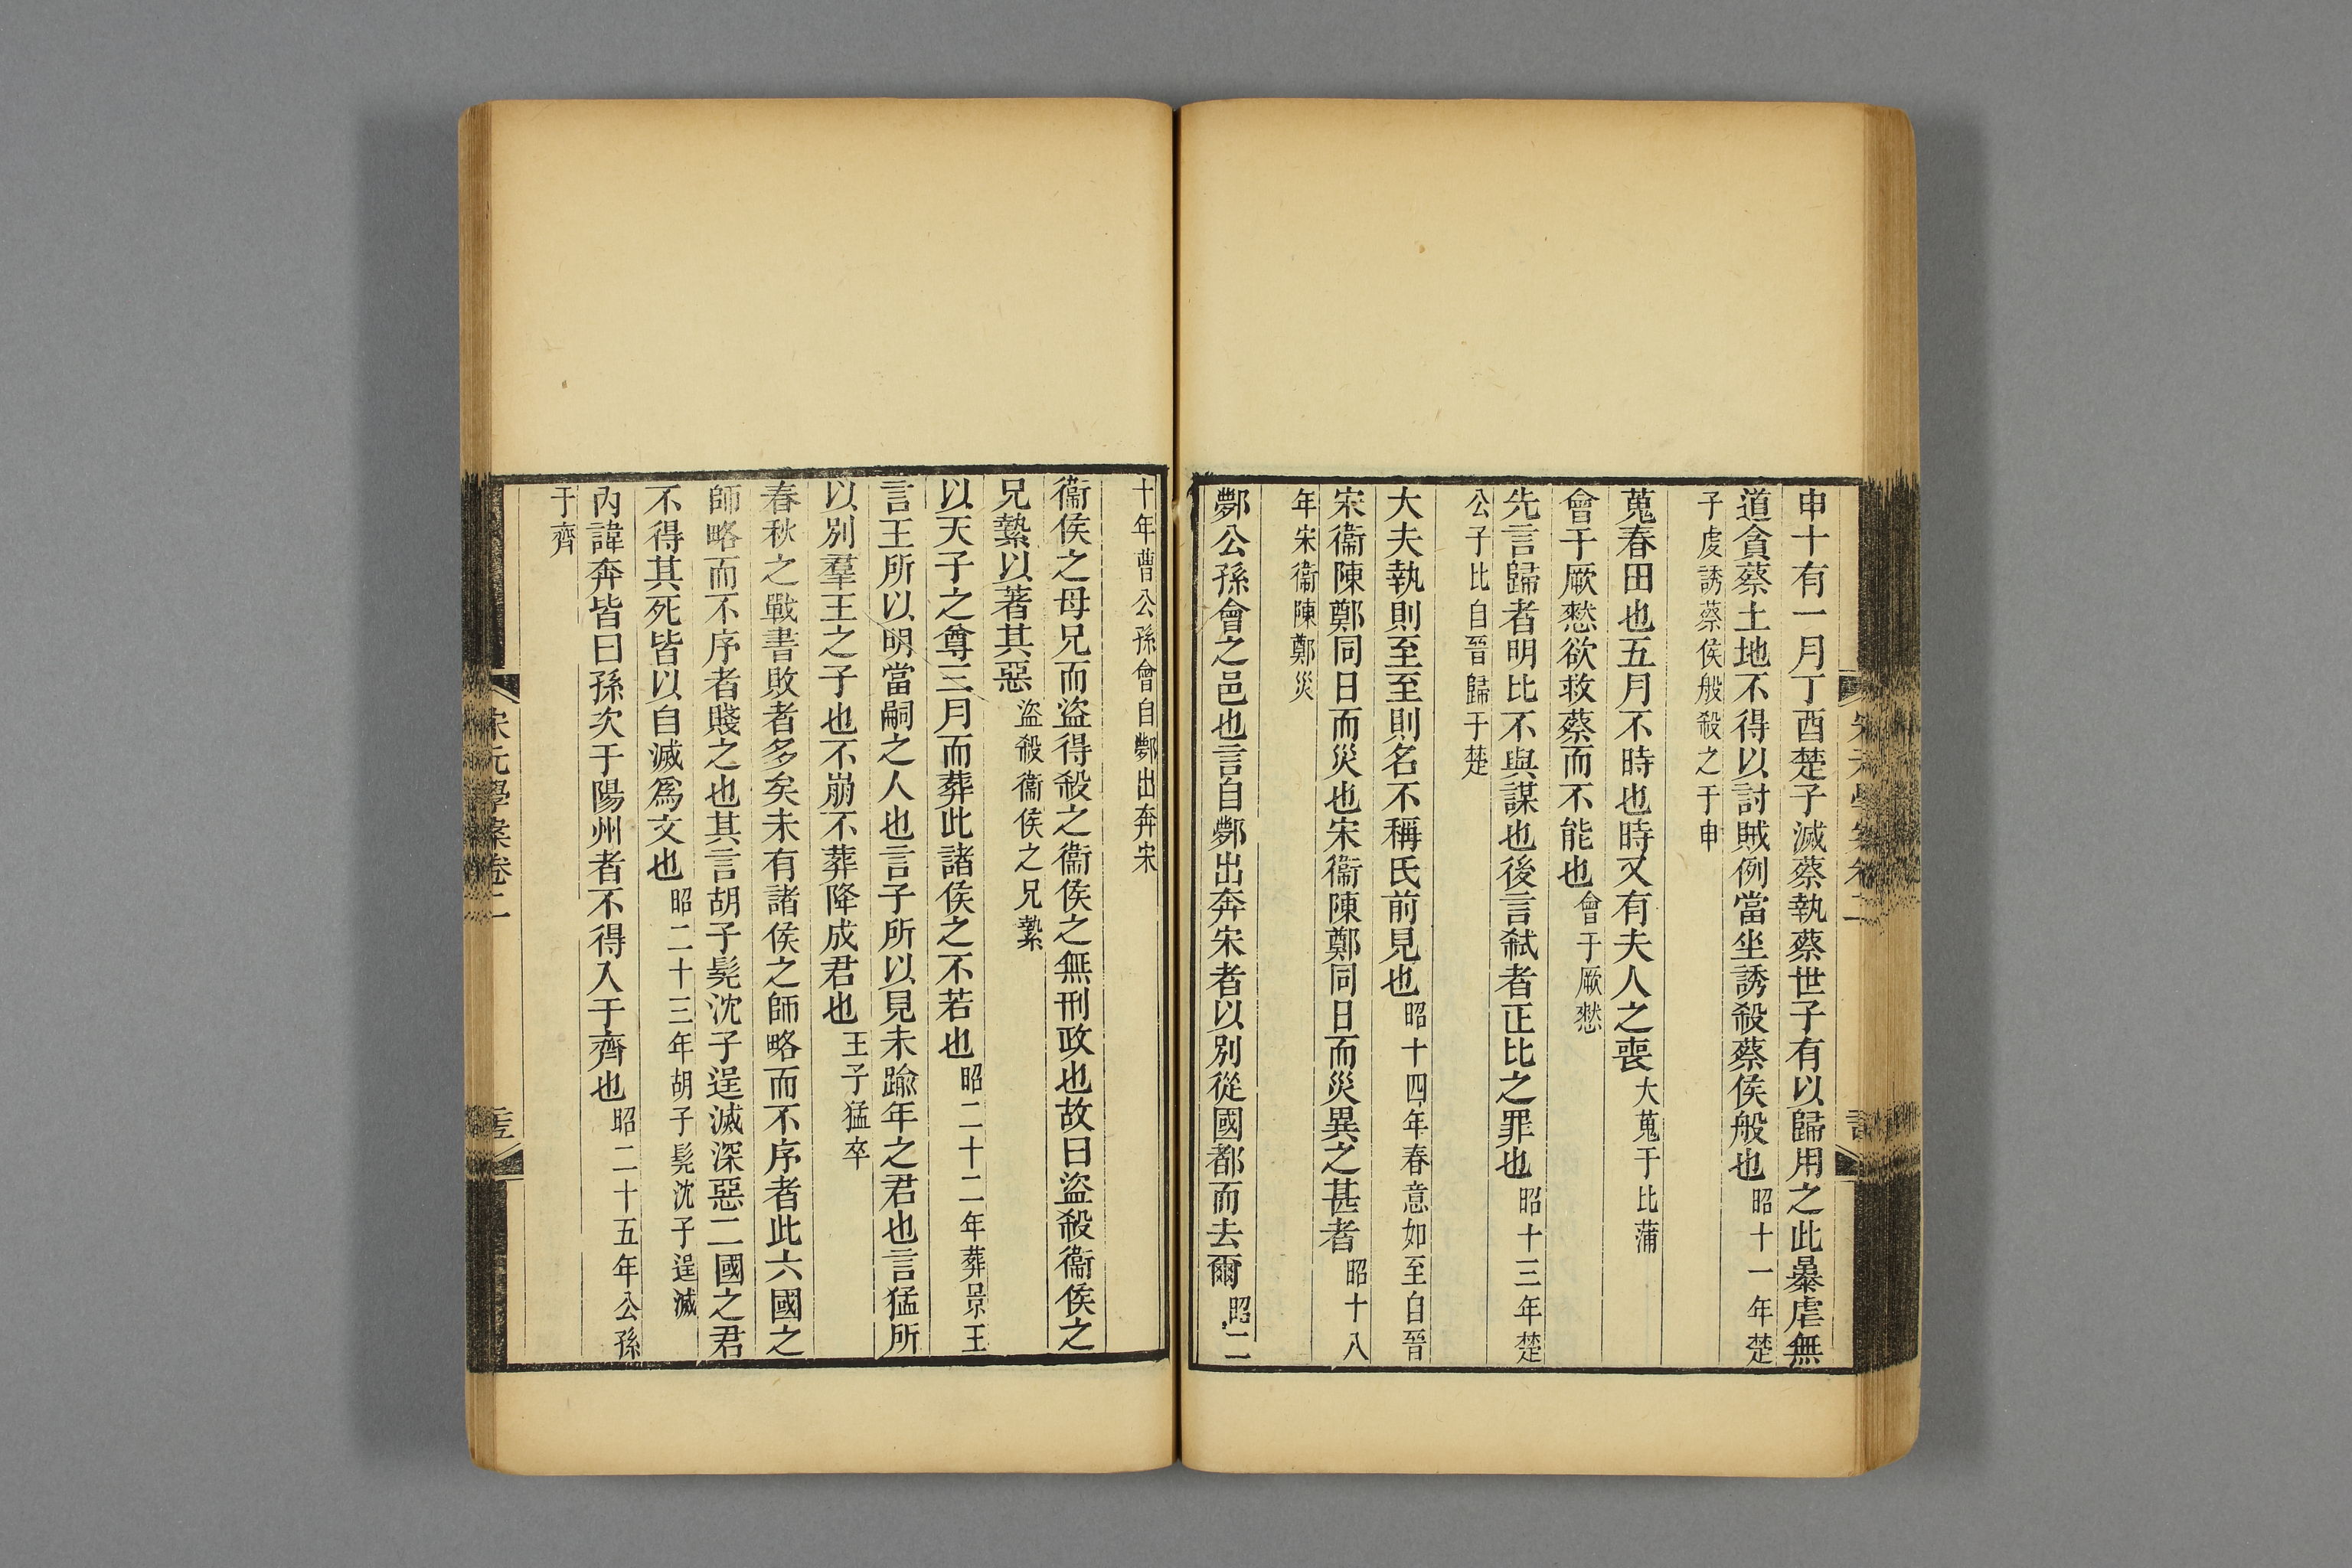 申十有一月丁酉楚子滅蔡執蔡世子有以歸用之此暴虐無
道貪蔡土地不得以討賊例當坐誘殺蔡侯般也昭十一年楚
子虔誘蔡侯般殺之于申
蒐春田也五月不時也時又有夫人之喪大蒐于比蒲
會于厥憖欲救蔡而不能也會于厥憖
先言歸者明比不與謀也後言弒者正比之罪也昭十三年楚
公子比自晉歸于楚
大夫執則至至則名不稱氏前見也昭十四年春意如至自晉
宋衞陳鄭同日而災也宋衞陳鄭同日而災異之甚者昭十八
年宋衞陳鄭災
鄸公孫會之邑也言自鄸出奔宋者以別從國都而去爾昭二
十年曹公孫會自鄸出奔宋
衞侯之母兄而盜得殺之衞侯之無刑政也故曰盜殺衞侯之
兄縶以著其惡盜殺衞侯之兄縶
以天子之尊三月而葬此諸侯之不若也昭二十二年葬景王
言王所以明當嗣之人也言子所以見未踰年之君也言猛所
以別羣王之子也不崩不葬降成君也王子猛卒
春秋之戰書敗者多矣未有諸侯之師略而不序者此六國之
師略而不序者賤之也其言胡子髡沈子逞滅深惡二國之君
不得其死皆以自滅爲文也昭二十三年胡子髡沈子逞滅
內諱奔皆曰孫次于陽州者不得入于齊也昭二十五年公孫
于齊
宋元學案卷二